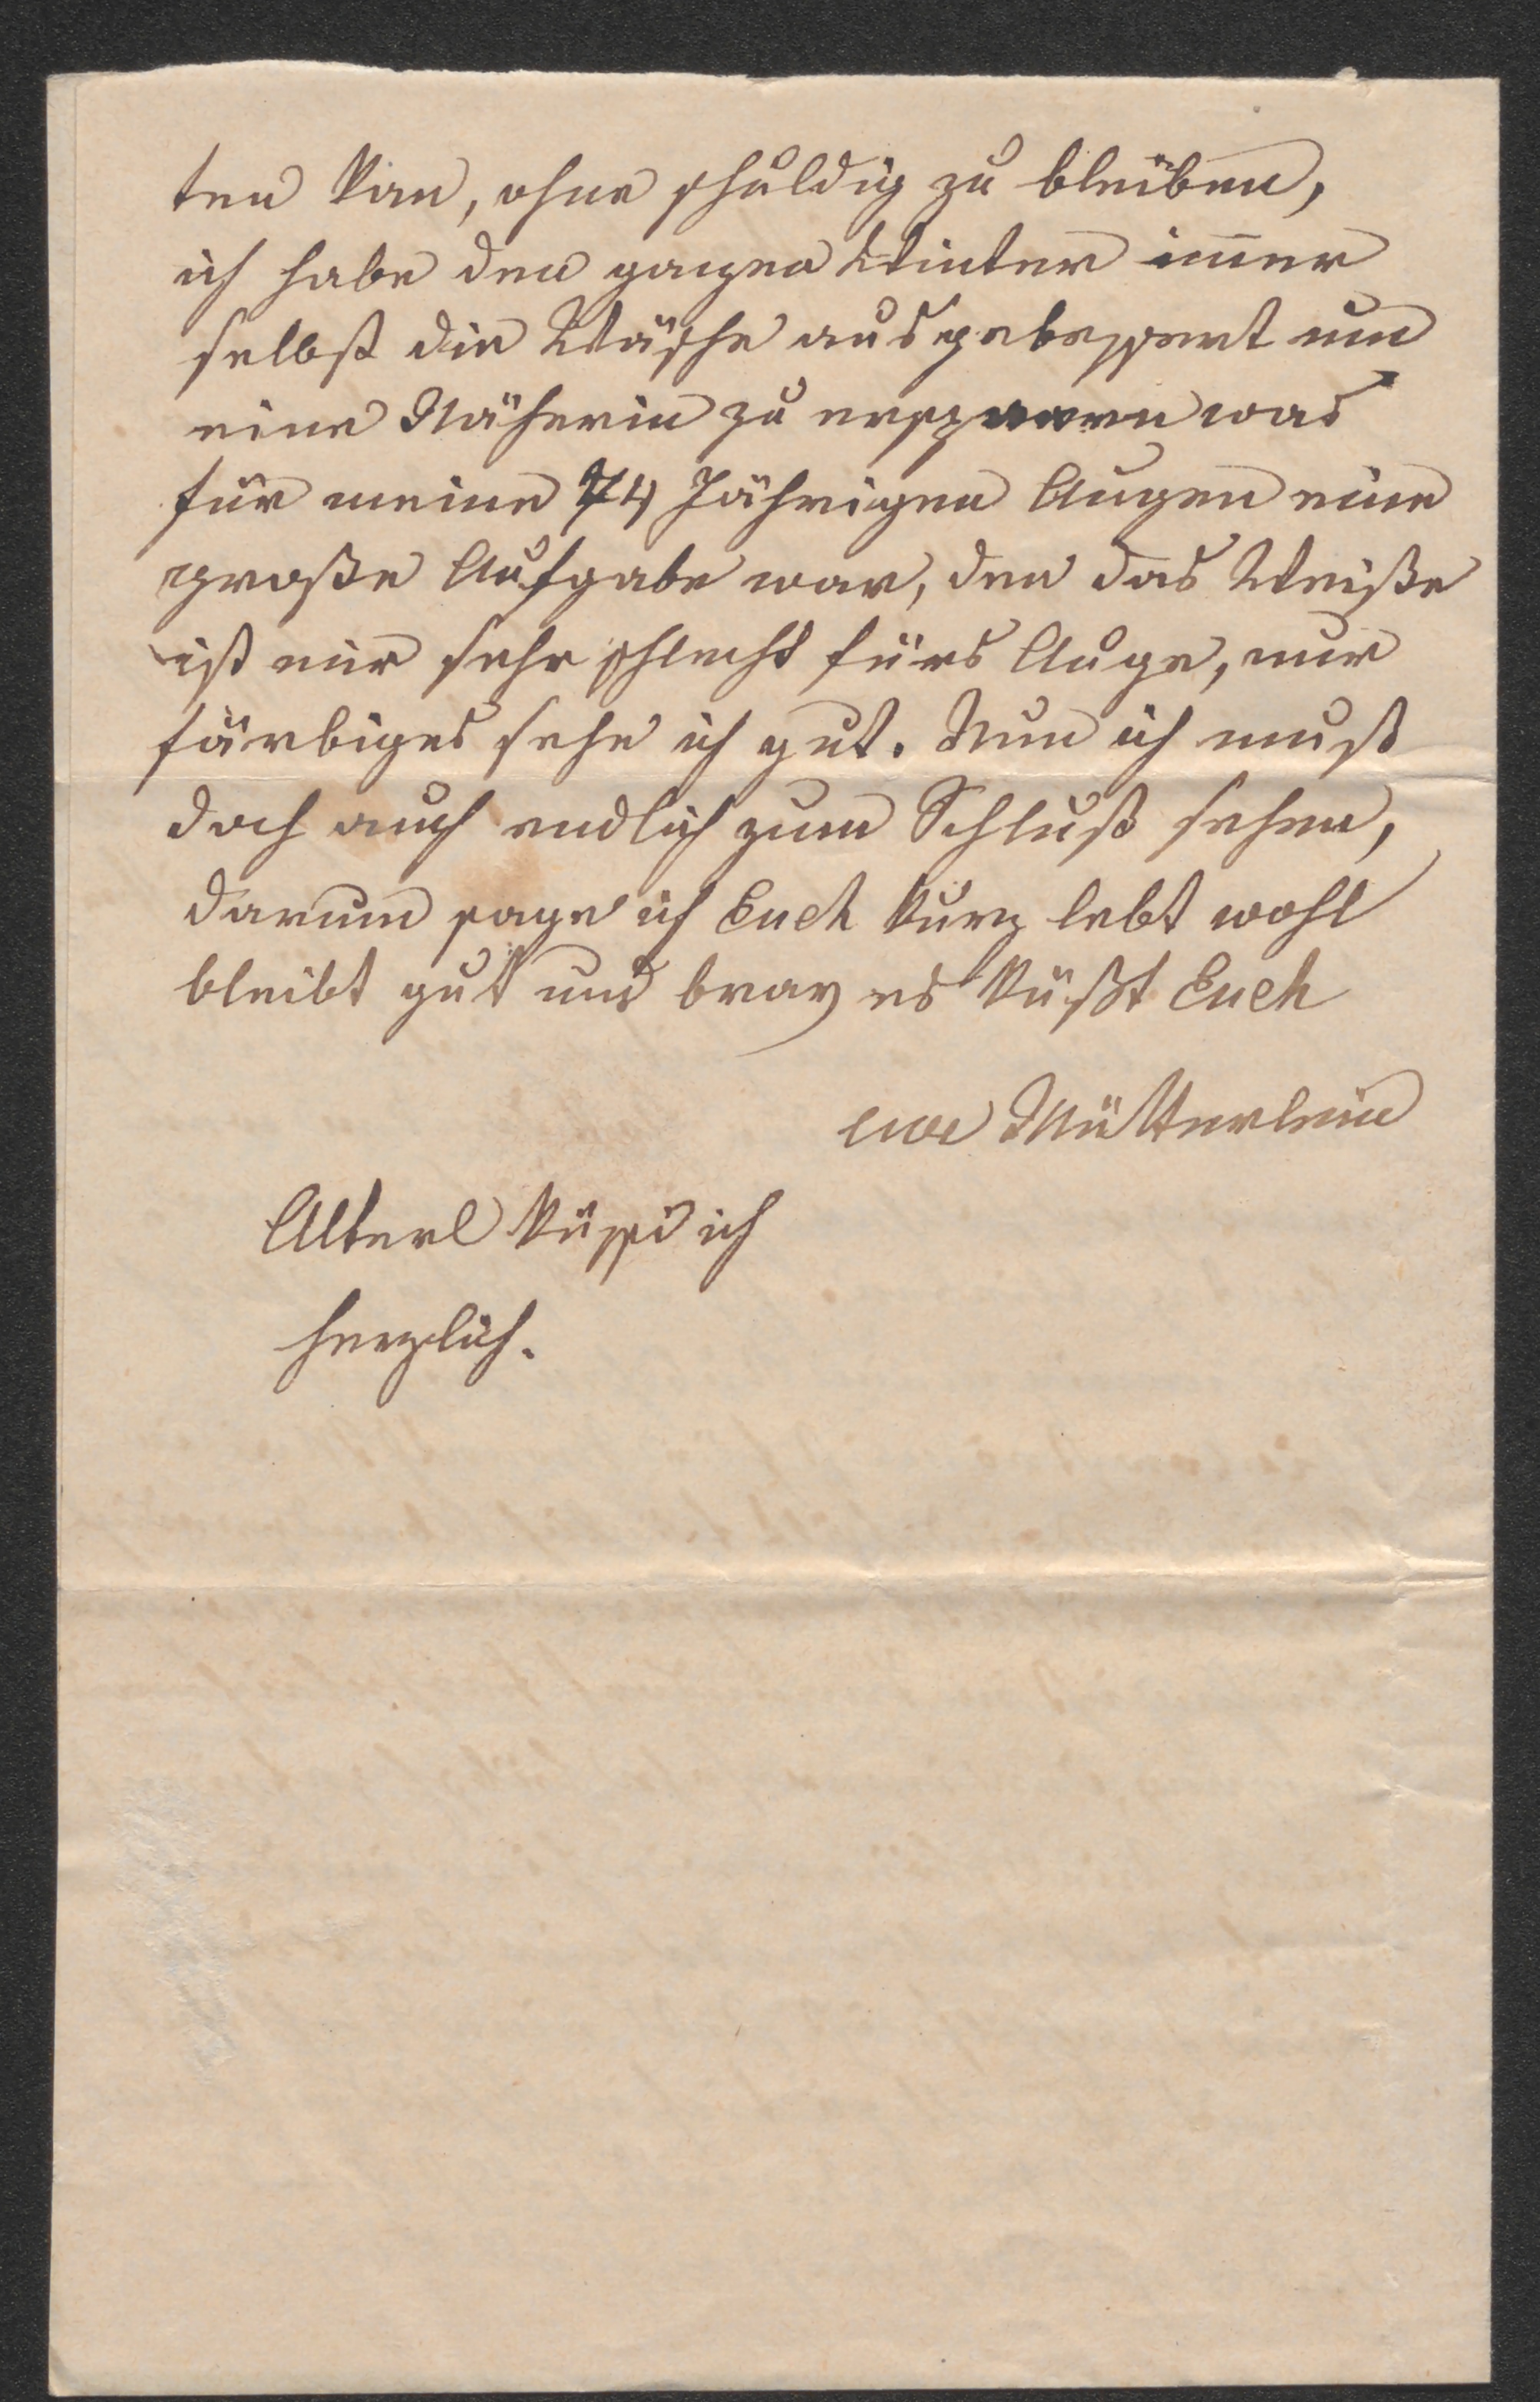 ten kan, ohne schuldig zu bleiben,
ich habe den ganzen Winter im̅er
selbst die Wäsche ausgebessert um
eine Näherin zu ersparen was
für meine 74 Jährigen Augen eine
große Aufgabe war, den das Weiße
ist mir sehr schlecht fürs Auge, nur
färbiges sehe ich gut. Nun ich muß
doch auch endlich zum Schluß sehen,
darum sage ich Euch kurz lebt wohl
bleibt gut und brav es küßt Euch
eue Mütterlein
Alterl küsse ich
herzlich.